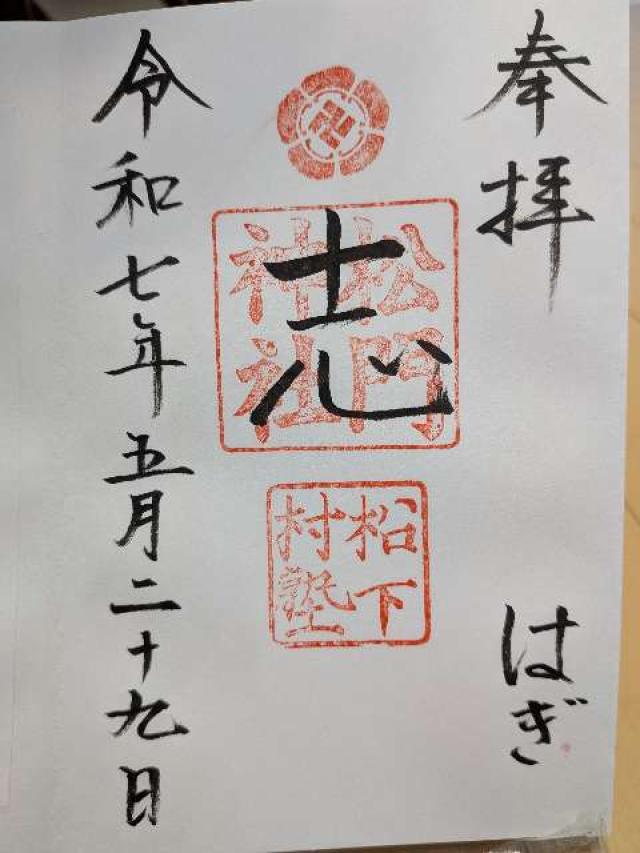 奉拝
はぎ
志
松門
神社
松下
村塾
令和七年五月二十九日